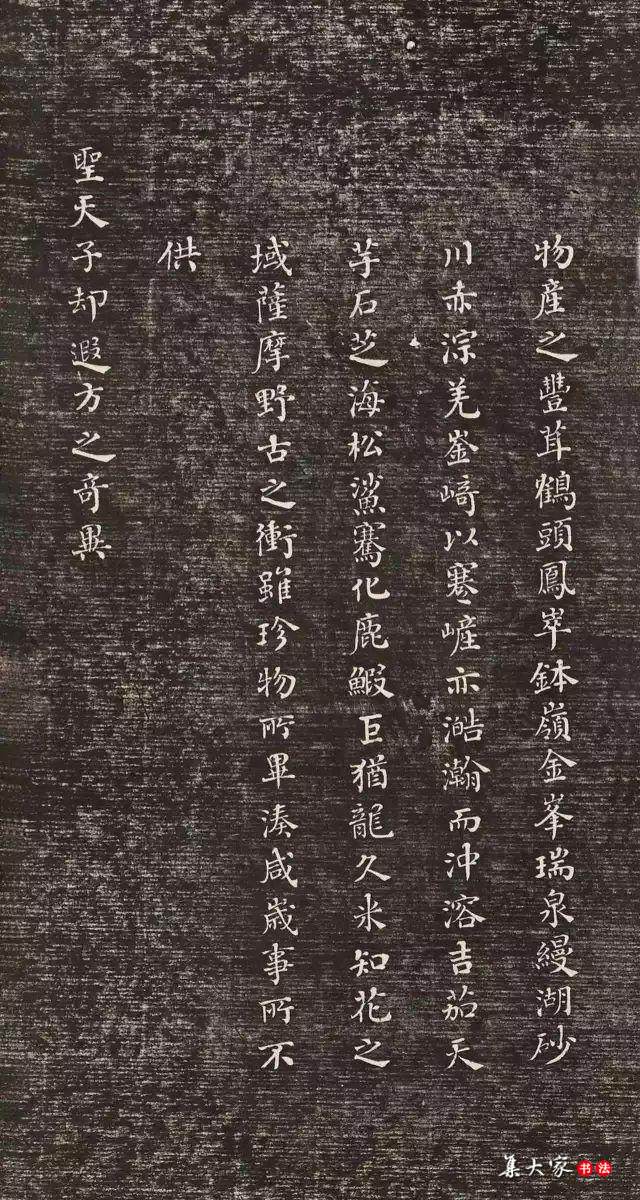 物産之豐茸鶴頭鳳崒鉢嶺金峯瑞泉縵湖砂
川赤淙羌崟﨑以蹇嵼亦澔瀚而沖溶吉茄天
芋石芝海松鯊騫化鹿鰕巨猶龍久米知花之
域薩摩野古之衝雖珍物所畢湊咸歲事所不
供
聖天子却遐方之奇異
集大家书法